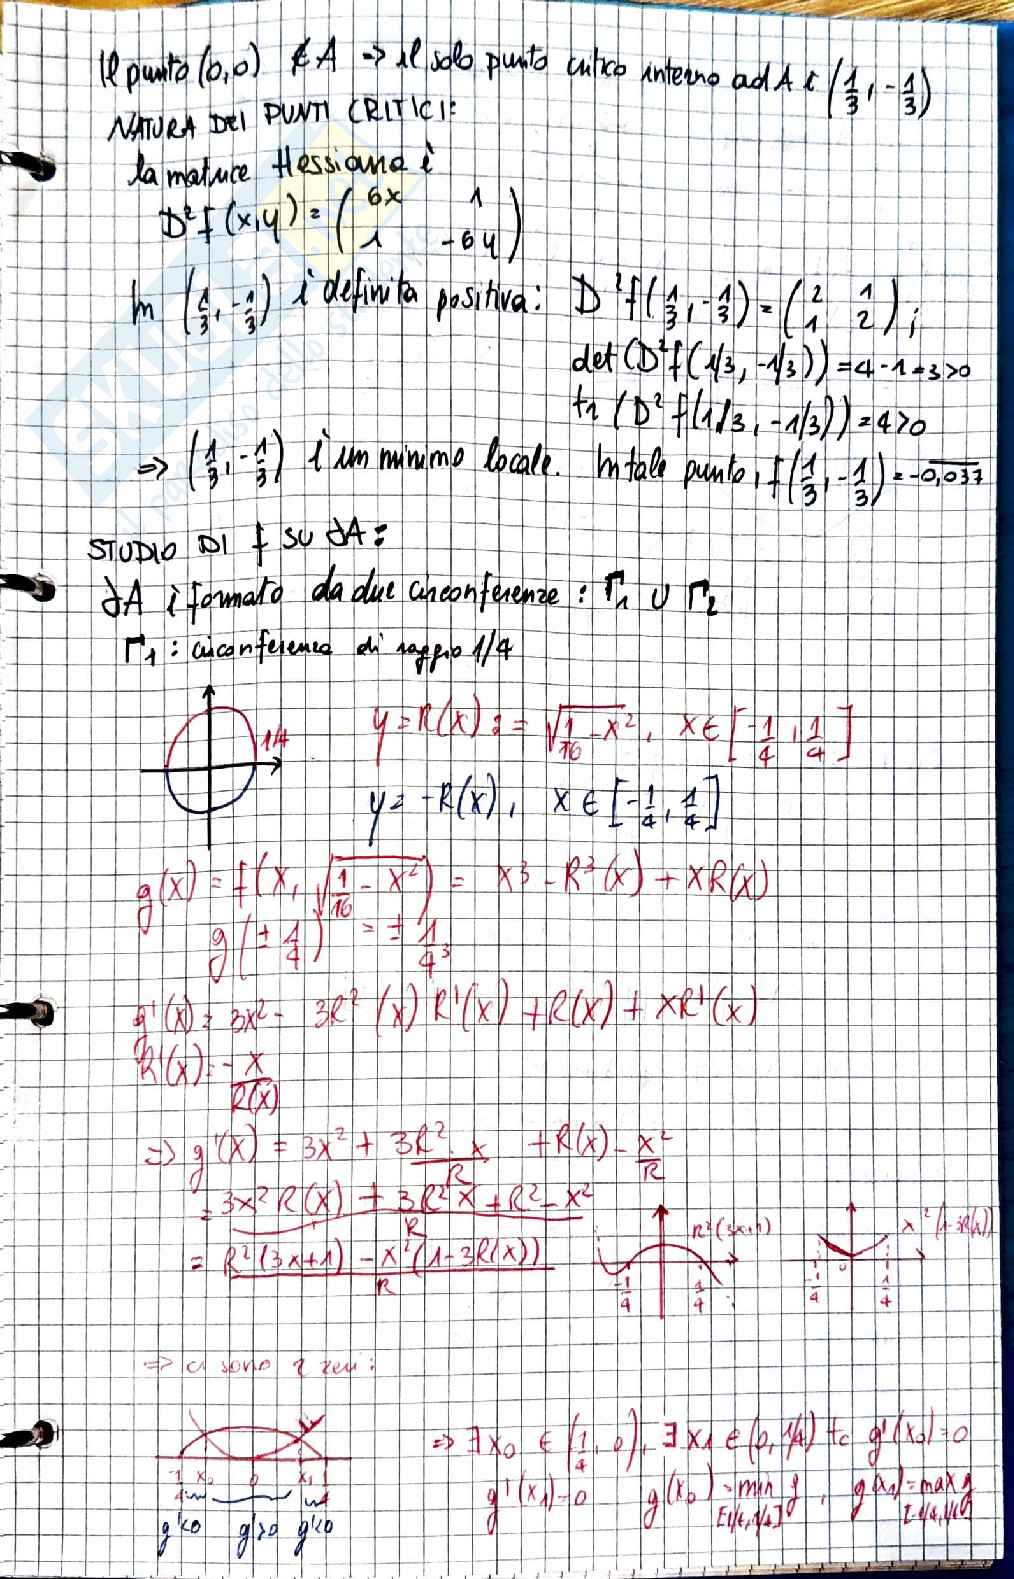 Il punto (0,0) ∉ A => il solo punto critico interno ad A è (1/3, -1/3)
NATURA DEI PUNTI CRITICI:
la matrice Hessiana è
D²f(x,y) = (6x 1
1 -6y)
In (1/3, -1/3) è definita positiva: D²f(1/3, -1/3) = (2 1
1 2);
det (D²f(1/3, -1/3)) = 4-1=3>0
tr (D²f(1/3, -1/3)) = 4>0
=> (1/3, -1/3) è un minimo locale. In tale punto, f(1/3, -1/3) = -0,037
STUDIO DI f SU ∂A:
∂A è formato da due circonferenze: Γ1 ∪ Γ2
Γ1: circonferenza di raggio 1/4
1/4
y = R(x) := √(1/16 - x²), x ∈ [-1/4, 1/4]
y = -R(x), x ∈ [-1/4, 1/4]
g(x) = f(x, √(1/16 - x²)) = x³ - R³(x) + xR(x)
g(± 1/4) = ± 1/4³
g'(x) = 3x² - 3R²(x) R'(x) + R(x) + xR'(x)
R'(x) = -x/R(x)
=> g'(x) = 3x² + 3R² · x/R + R(x) - x²/R
= (3x²R(x) + 3R²x + R² - x²)/R
= (R²(3x+1) - x²(1-3R(x)))/R
R²(3x+1)
-1/4 1/4
x²(1-3R(x))
-1/4 0 1/4
=> ci sono 2 zeri:
-1/4 x0 0 x1 1/4
g'<0 g'>0 g'<0
=> ∃ x0 ∈ (1/4, 0), ∃ x1 ∈ (0, 1/4) tc g'(x0)=0
g'(x1)=0 g(x0) = min g [-1/4, 1/4], g(x1) = max g [-1/4, 1/4]